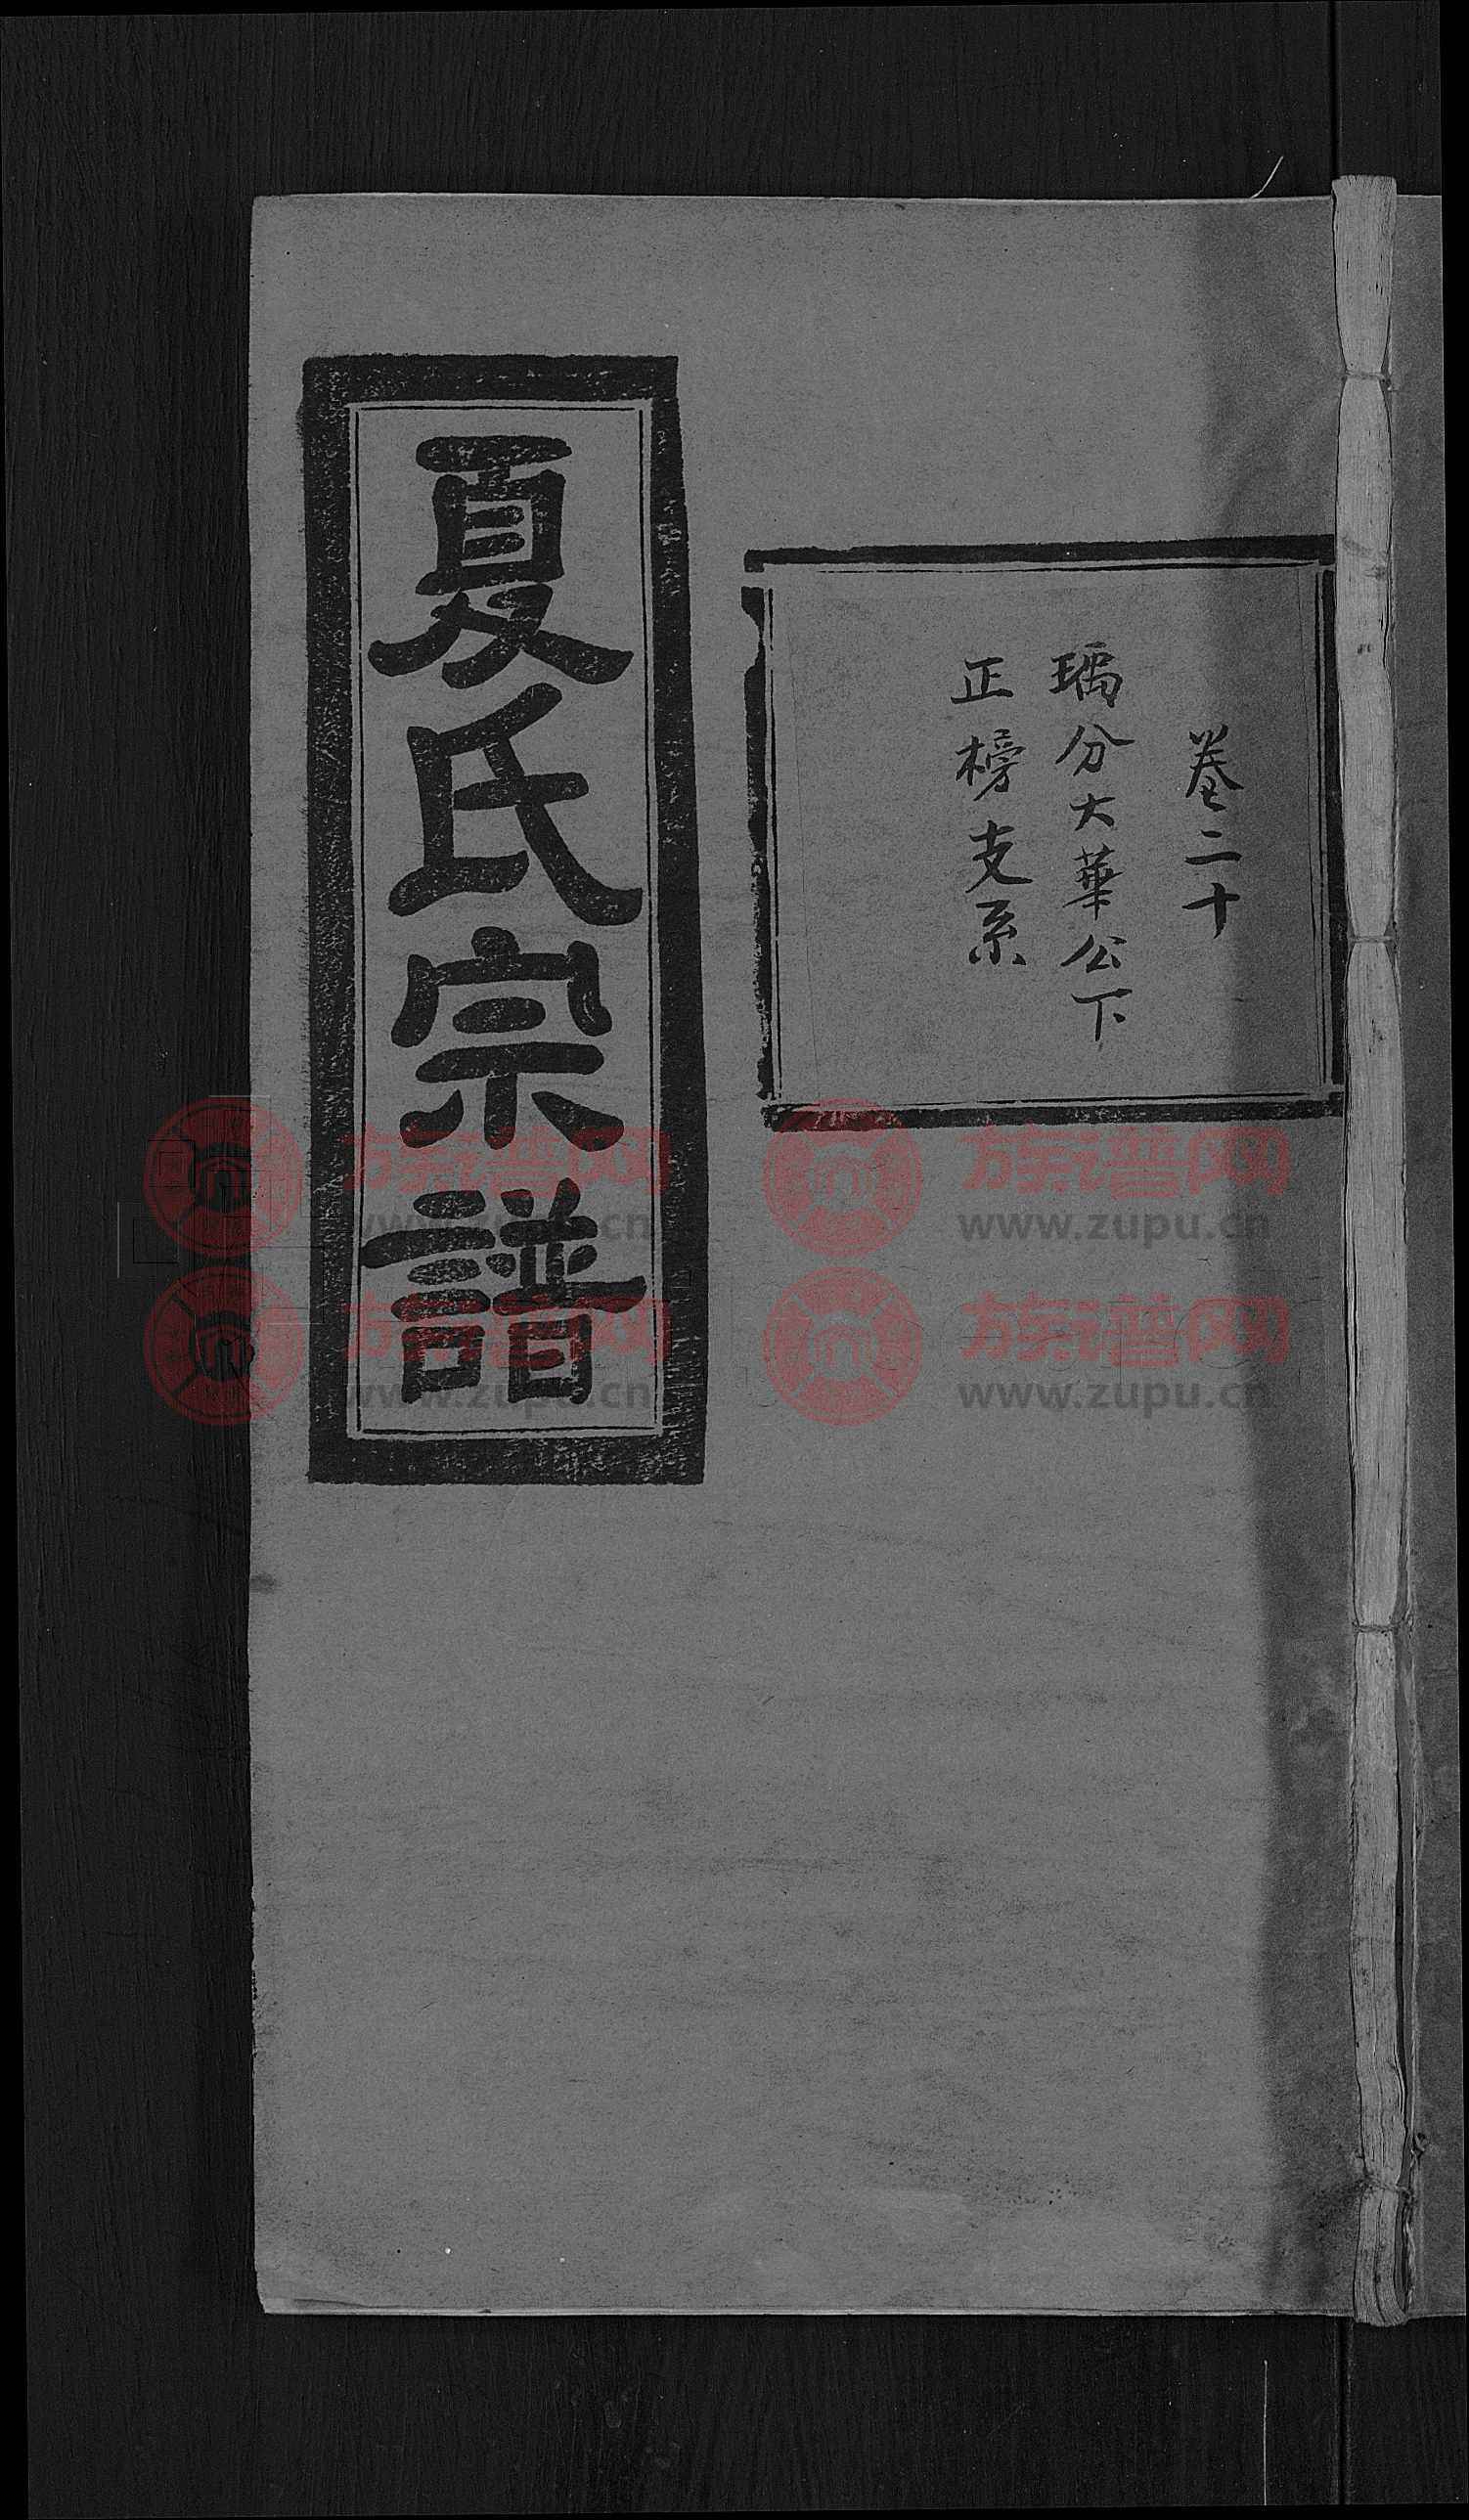 卷二十
瑀分大華公下
正榜支系
夏氏宗譜
族谱网
www.zupu.cn
族谱网
www.zupu.cn
族谱网
www.zupu.cn
族谱网
www.zupu.cn